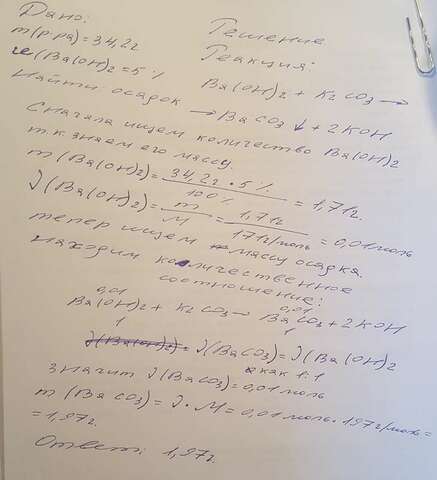 Дано:
m(р-ра)=34,2г
ω(Ba(OH)2=5%
Найти: осадок
Решение
Реакция:
Ba(OH)2 + K2CO3 →
→ BaCO3↓ + 2KOH
Сначала ищем количество Ba(OH)2
т.к знаем его массу.
m(Ba(OH)2)= 34,2г • 5% / 100% = 1,71г.
ν(Ba(OH)2)= m / M = 1,71г / 171г/моль = 0,01моль
тепер ищем массу осадка.
Находим количественное
соотношение:
0,01 0,01
Ba(OH)2 + K2CO3 → BaCO3 + 2KOH
1 1
ν(Ba(OH)2)= ν(BaCO3)= ν(Ba(OH)2
как 1:1
значит ν(BaCO3)=0,01моль
m(BaCO3)= ν • M = 0,01моль • 197г/моль =
= 1,97г.
Ответ: 1,97г.